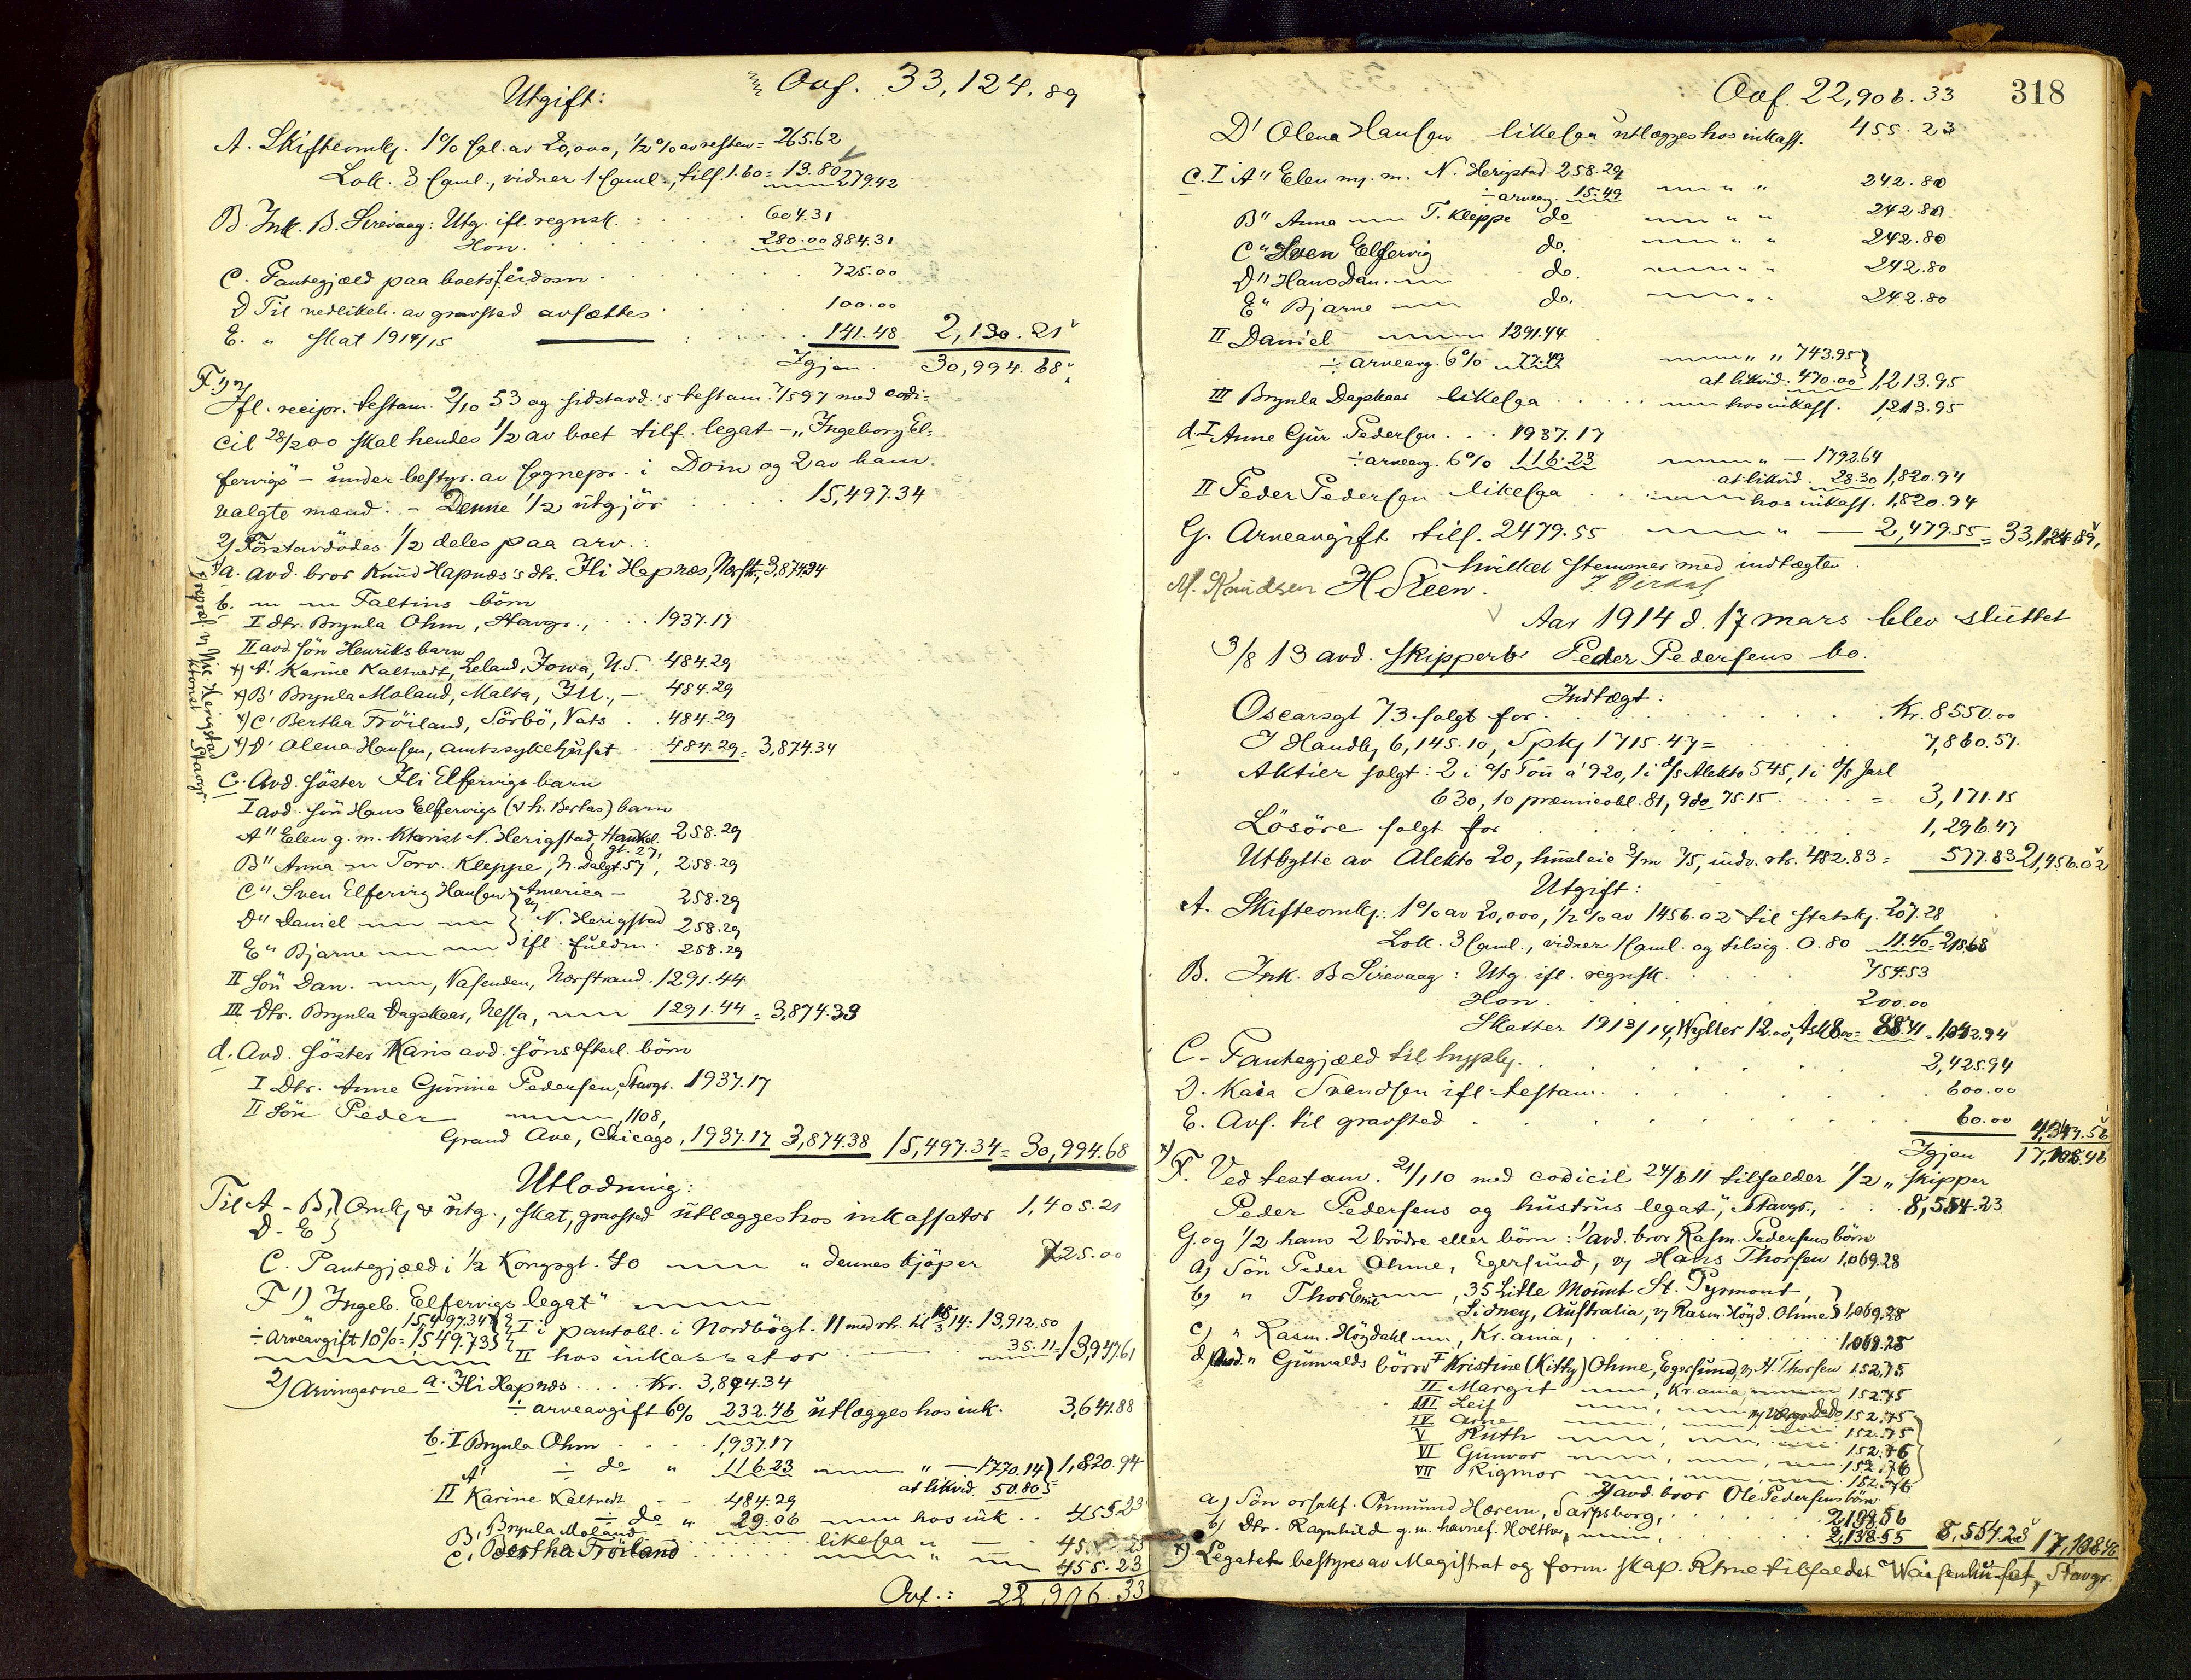 Utgift: Ovf. 33,124.89
A. Skifteomkj. 1% sal. av 20,000, 1/2% av resten = 265.62
Lok. 3 saml., vidner 1 saml., tils. 1.60 = 13.80 279.42
B. Ink. B. Sirevaag: Utg. ifl. regnsk. : 604.31
Hon. 280.00 884.31
C. Pantegjæld paa boets eidom 725.00
D Til vedlikeh. av gravsted avsættes 100.00
E. " skat 1914/15 141.48 2,130.21
Igjen. 30,994.68
F. 1)
Ifl. recipr. testam. 2/10 53 og sidstavd.'s testam. 7/5 97 med codi=
cil 28/2 00 skal hendes 1/2 av boet tilf. legat - "Ingeborg El=
fervigs" - under bestyr. av sognepr. i Dom og 2 av ham
valgte mænd. - Denne 1/2 utgjör 15,497.34
2) Förstavdödes 1/2 deles paa arv.:
a. avd. bror Knud Hapnæs's dtr. Ili Hapnæs, Nærstr., 3,874.34
b. " " Faltins börn
I dtr. Brynla Ohm, Stavgr., 1937.17
II avd. sön Henriks barn
x) A' Karine Kaltvedt, Leland, Jowa, U.S. 484.29
x) B' Brynla Moland, Malta, Ill., - 484.29
x) C' Bertha Tröiland, Sörbö, Vats 484.29
x) D' Olena Hansen, amtssykehuset 484.29 = 3,874.34
c. Avd. söster Ili Elfervigs barn
I avd. sön Hans Elfervigs (& h. Bertas) barn
A" Elen g. m. Ktorist N. Herigstad, Haukel. gt. 27, 258.29
B" Anna " Torv. Kleppe, N. Dalgt. 57, 258.29
C" Sven Elfervig Hansen America - 258.29
D" Daniel " " v/ N. Herigstad 258.29
E" Bjarne " " ifl. fuldm. 258.29
II Sön Dan. " , Vasenden, Nærstrand. 1291.44
III Dtr. Brynla Dagskaar, Nessa, " 1291.44 = 3,874.33
d. Avd. söster Karis avd. söns efterl. börn
I Dtr. Anne Gurine Pedersen, Stavgr. 1937.17
II Sön Peder " , 1108,
Grand Ave, Chicago, 1937.17 3,874.38 15,497.34 = 30,994.68
Utlodning:
Til A - B, D - E } Omkj & utg., skat, gravsted utlægges hos inkassator 1,405.21
C. Pantegjæld i 1/2 Kongsgt. 40 " " dennes kjöper 725.00
F 1) Ingeb. Elfervigs legat"
15,497.34 I i pantobl. i Nordbögt. 11 med rh. til 18/3 14: 13,912.50
÷ Arveavgift 10% = 1,549.73 II hos inkassator 35.11 = 13,947.61
2) Arvingerne a. Ili Hapnæs Kr. 3,874.34
÷ arveavgift 6% 232.46 utlægges hos ink. 3,641.88
b. I Brynla Ohm 1,937.17
÷ do " 116.23 " - 1770.14 } 1,820.94
at likvid. 50.80
II A' Karine Kaltvedt 484.29
÷ do " 29.06 hos ink. 455.23
B' Brynla Moland likesaa " 455.23
C' Bertha Tröiland " 455.23
Ovf.: 22,906.33
Ovf. 22,906.33 318
D' Olena Hansen likesaa utlægges hos inkass. 455.23
c. I A" Elen " m. N. Herigstad 258.29
÷ arveavg. 15.49 " " 242.80
B" Anna " T. Kleppe do " " 242.80
C" Sven Elfervig do. " " 242.80
D" Hans Dan. " do. " " 242.80
E" Bjarne " do. " " 242.80
II Daniel " 1291.44
÷ arveavg. 6% 77.49 " " 743.95 }
at likvid. 470.00 1,213.95
III Brynla Dagskaar likesaa hos inkass. 1,213.95
d. I Anne Gur. Pedersen 1937.17
÷ arveavg. 6% 116.23 " - 1792.64
at likvid. 28.30 1,820.94
II Peder Pedersen likesaa hos inkass. 1,820.94
G. Arveavgift tils. 2479.55 " - 2,479.55 = 33,124.89,
hvilket stemmer med indtægten.
M. Knudsen H. Steen.
Aar 1914 d. 17 mars blev sluttet
3/8 13 avd. skipperb. Peder Pedersens bo.
Indtægt:
Oscarsgt 73 solgt for Kr. 8550.00
I Handbk 6,145.10, Spkj 1715.47 = 7,860.57.
Aktier solgt: 2 i a/s Foü á 920, 1 i d/s Alekto 545, 1 i d/s Jarl
630, 10 præmieobl. 81, 9 do 75.15 = 3,171.15
Lösöre solgt for 1,296.47
Utbytte av Alekto 20, husleie 3/m 75, indv. rtr. 482.83 = 577.83 21,456.02
Utgift:
A. Skifteomkj.: 1% av 20,000, 1/2% av 1456.02 til statskj. 207.28
Lok. 3 saml., vidner 1 saml. og tilsig. 0.80 11.40 = 218.68
B. Ink. B Sirevaag: Utg. ifl. regnsk. 754.53
Hon. 200.00
Skatter 1913/14, Wyller 12.00, 88.41 = 1,042.94
C - Pantegjæld til hypbk. 2,425.94
D. Kaia Svendsen ifl. testam. 600.00
E. Avs. til gravsted 60.00 4,347.56
Igjen 17,108.46
x) F. Ved testam. 21/1 10 med codicil 24/6 11 tilfalder 1/2 "skipper
Peder Pedersens og hustrus legat", Stavgr., 8,554.23
G og 1/2 hans 2 brödre eller börn: 1) avd. bror Rasm. Pedersens börn
a) Sön Peder Ohme, Egersund, v/ Hans Thorsen 1,069.28
b) " Thor Emil " , 35 Litle Mount St. Pyrmont,
Sidney, Australia, v/ Rasm. Höyd. Ohme } 1,069.28
c) " Rasm. Höydahl " , Kr.ania, 1,069.28
d) Avd. " Gunvalds börn I Kristine (Kitty) Ohme, Egersund, v/ H. Thorsen 152.75
II Margit " , Kr.ania, " 152.75
III Leif " , " 152.75
IV Arne " , " 152.75
V Ruth " , " 152.76
VI Gunvor " , " 152.76
VII Rigmor " , " 152.76
2) avd. bror Ole Pedersens börn
a) Sön orsakf. Ommund Hærem, Sarpsborg, 2,138.56
b) Dtr. Ragnhild g. m. havnef. Holthe, " 2,138.55 8,554.23 17,108.46
x) Legatet bestyres av Magistrat og form. skap. Rtrne tilfalder Waisenhuset, Stavgr.
x) repræs. v/ Nic. Herigstad Stavgr.